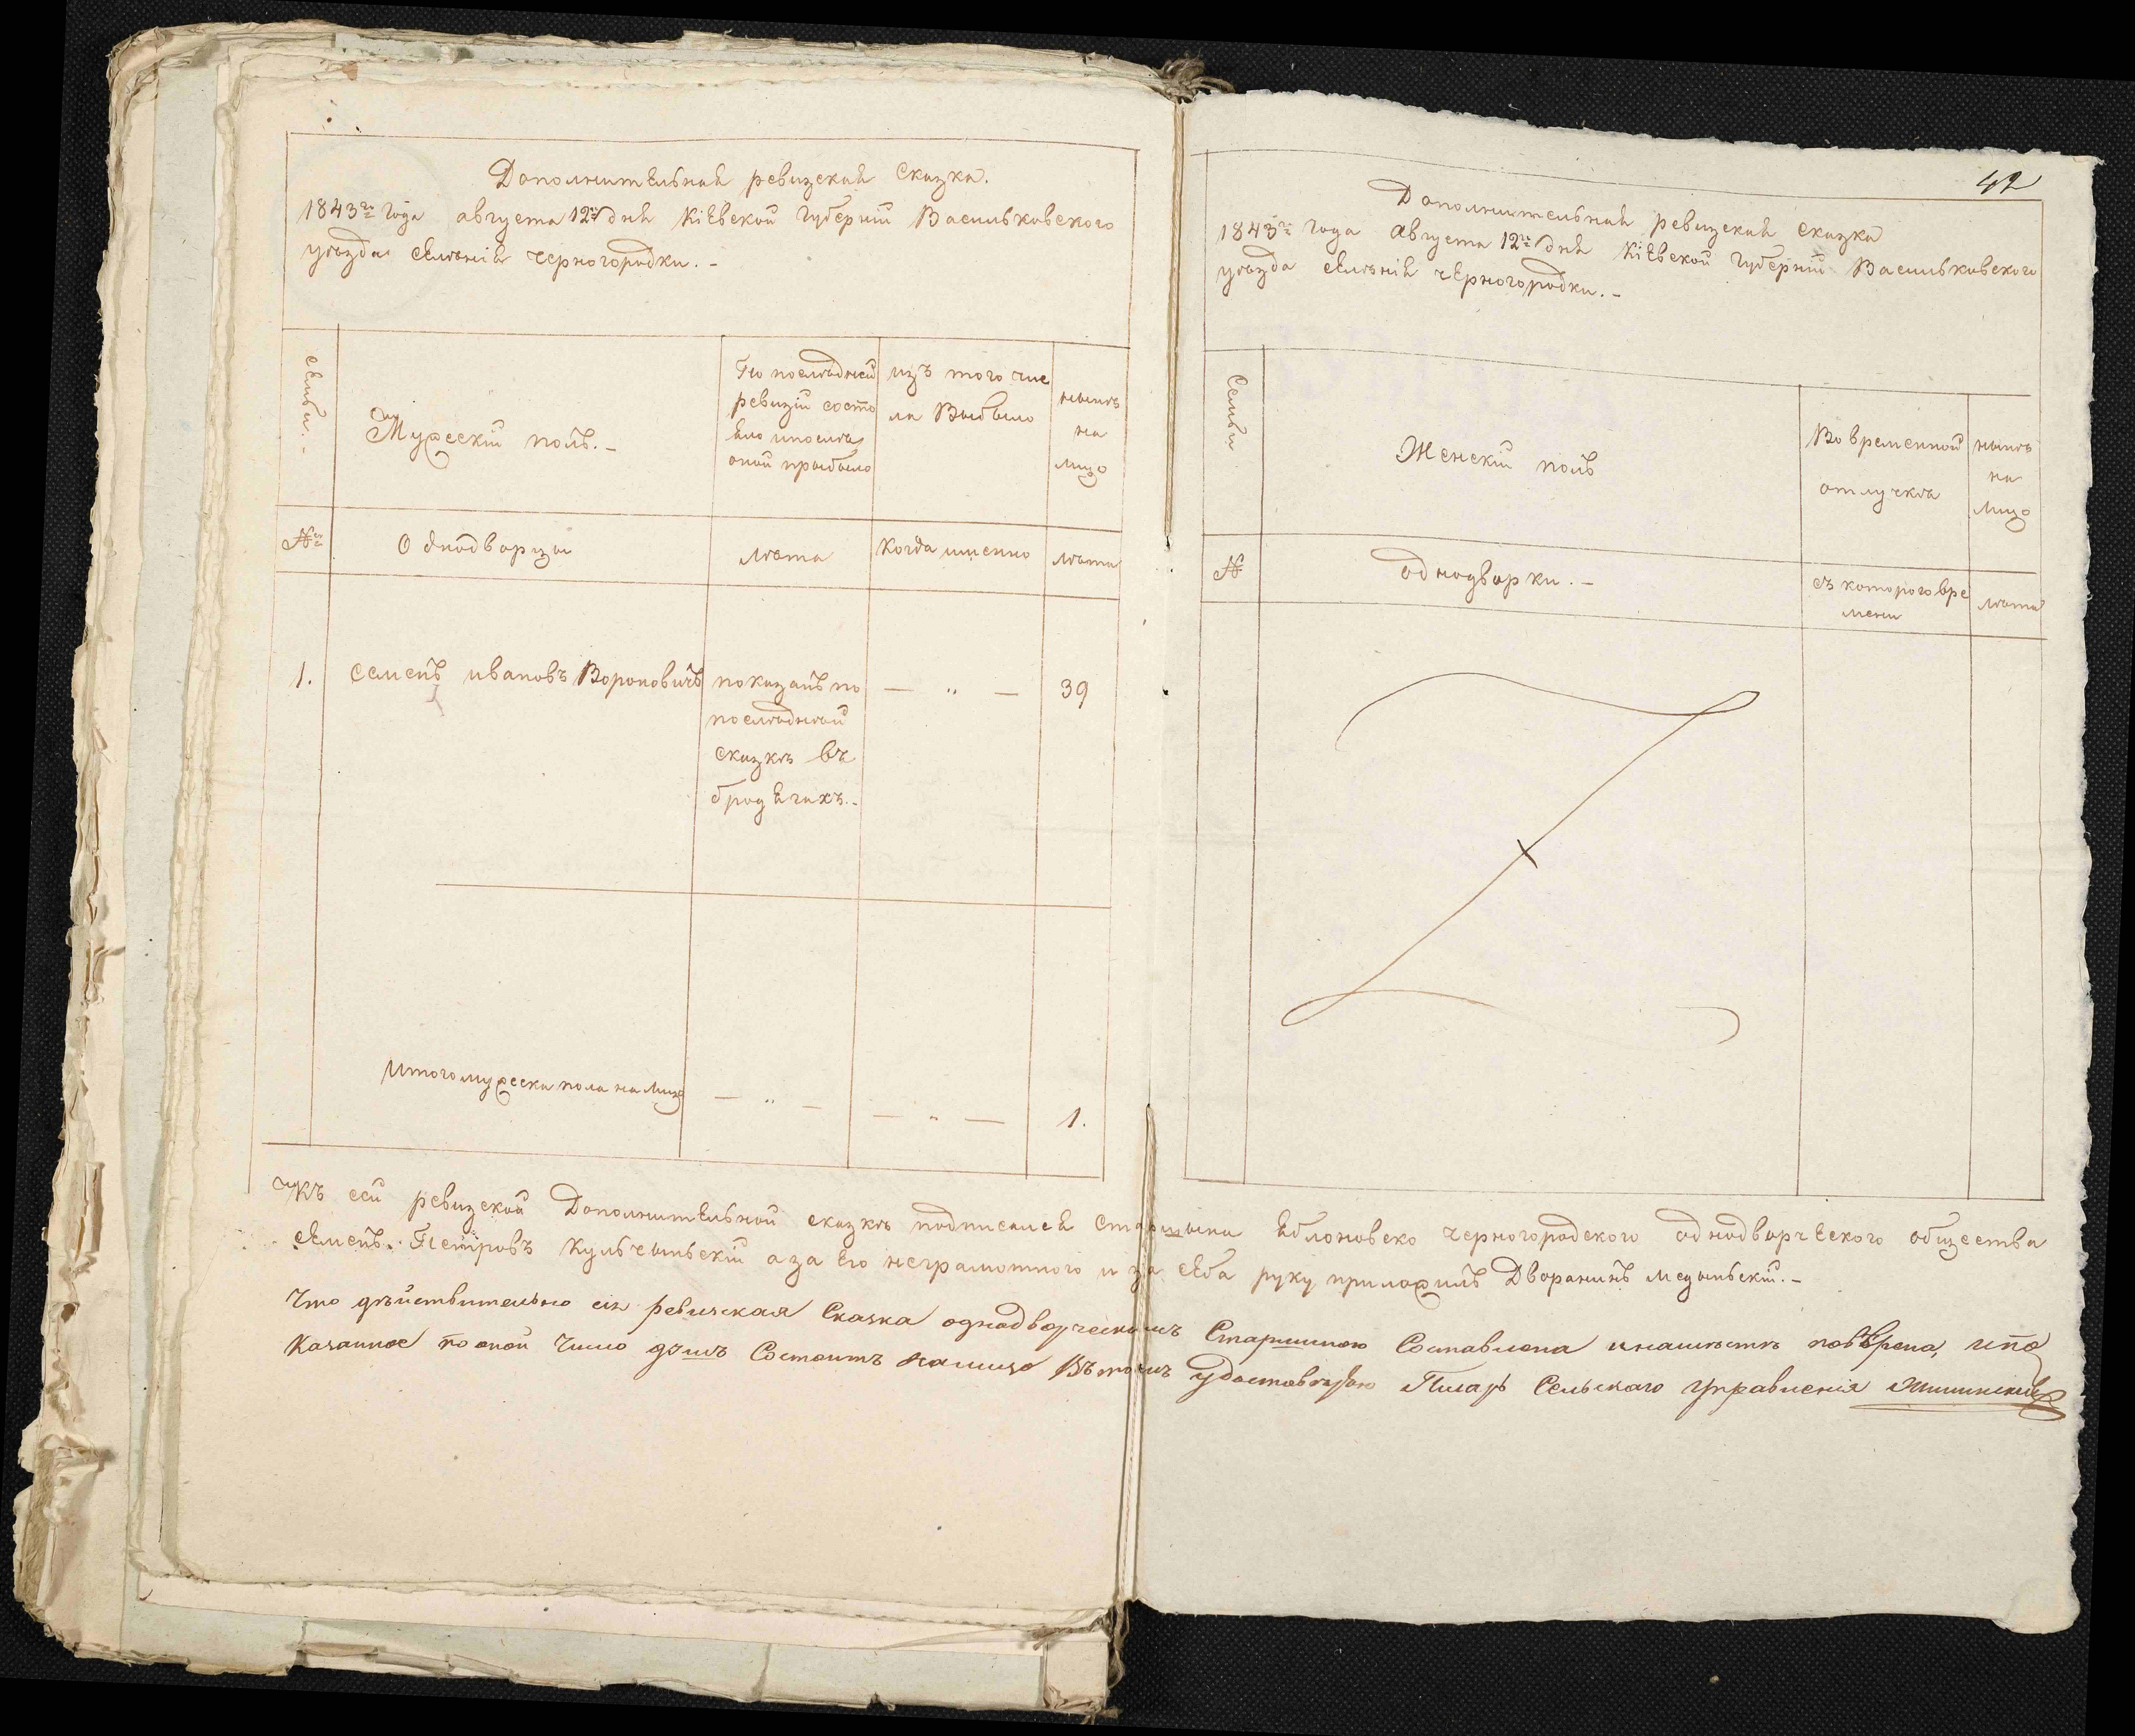 Дополнительная ревизская Сказка.
1843го Года августа 12го дня Кіевской Губерніи Васильковского
уѣзда селѣнія черногородки. -
семьи.
Мужескій полъ. -
По послѣдней
ревизіи состо
яло и послѣ
оной прибыло
изъ того чис
ла Выбыло
нынѣ
на
лицо
№
Однодворцы
лѣта
Когда именно
лѣта
1. Семенъ ивановъ Вороновичъ
показанъ по
послѣднѣй
сказкѣ въ
бродягахъ. -
— " —
39
Итого мужеска пола на лицо — " — — " — 1.
42
Дополнительная ревизская сказка
1843го Года августа 12го дня Кіевской Губерніи Васильковского
уѣзда селѣнія черногородки. -
Семьи
Женскій полъ
Во временной
отлучкѣ
нынѣ
на
лицо
№
однодворки. -
съ которого вре
мени
лѣта
Къ сей ревизской Дополнительной сказкѣ подписался старшына яблоновско черногородского однодворческого общества
семенъ Петровъ Кульчыньскій а за его неграмотного и за себя руку приложилъ Дворанинъ медыньскій. -
Что дѣйствительно сія ревизская Сказка однодворческимъ Старшиною Составлена и на мѣстѣ повѣрена, и по
казанное по оной Число душъ Состоитъ на лицо Въ томъ удостовѣряю Писарь Сельскаго Управленія